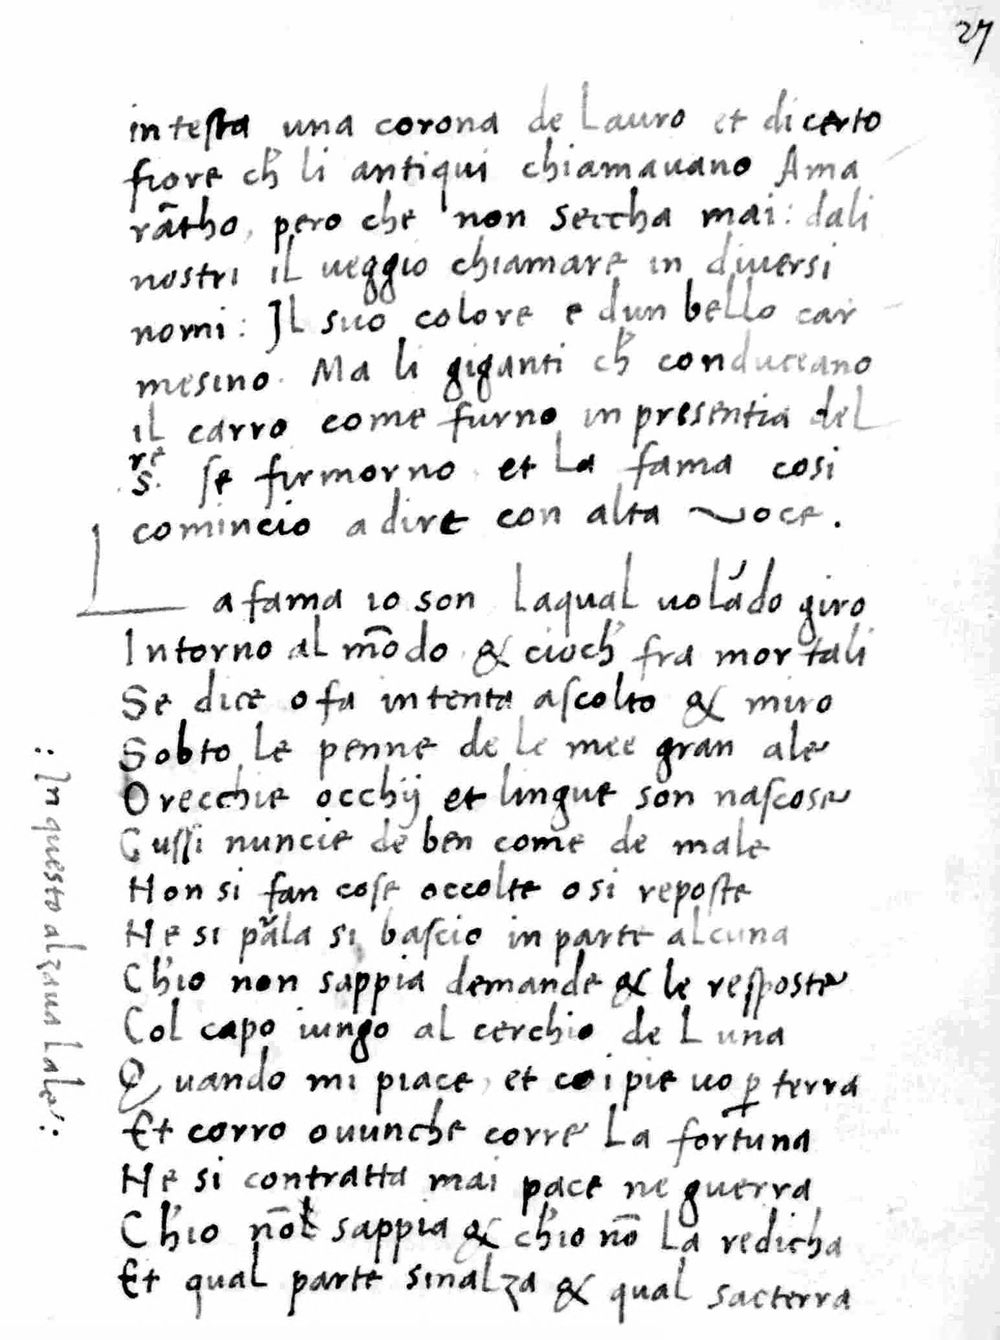 27
in testa una corona de Lauro et di certo
fiore ch̄ li antiqui chiamauano Ama
rātho, pero che non seccha mai: dali
nostri il ueggio chiamare in diuersi
nomi: Il suo colore e dun bello car
mesino. Ma li giganti ch̄ conduceano
il carro come furno in presentia del
S.re se firmorno et La fama cosi
comincio a dire con alta voce.
La fama io son laqual uolādo giro
Intorno al mōdo & cioch̄ fra mortali
Se dice o fa intenta ascolto & miro
Sobto Le penne de le mee gran ale
Orecchie occhij et lingue son nascose
Cussi nuncie de ben come de male
Non si fan cose occolte o si reposte
Ne si parla si bascio in parte alcuna
Ch'io non sappia demande & le resposte
Col capo iungo al cerchio de Luna
Quando mi piace, et co i pie uo p̱ terra
Et corro ouunche corre La fortuna
Ne si contratta mai pace ne guerra
Ch'io nō sappia & ch'io nō La redicha
Et qual parte sinalza & qual sacterra
: In questo alzaua Lale :